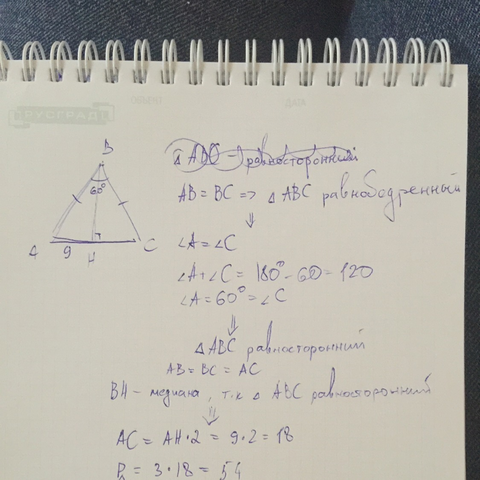 РУСГРАД
ОБЪЕКТ
ДАТА
△ ABC - равносторонний
AB = BC => △ ABC равнобедренный
⇓
∠A = ∠C
∠A + ∠C = 180° - 60 = 120
∠A = 60° = ∠C
⇓
△ ABC равносторонний
AB = BC = AC
BH - медиана, т.к △ ABC равносторонний
⇓
AC = AH · 2 = 9 · 2 = 18
P△ = 3 · 18 = 54
B
60°
A 9 H C